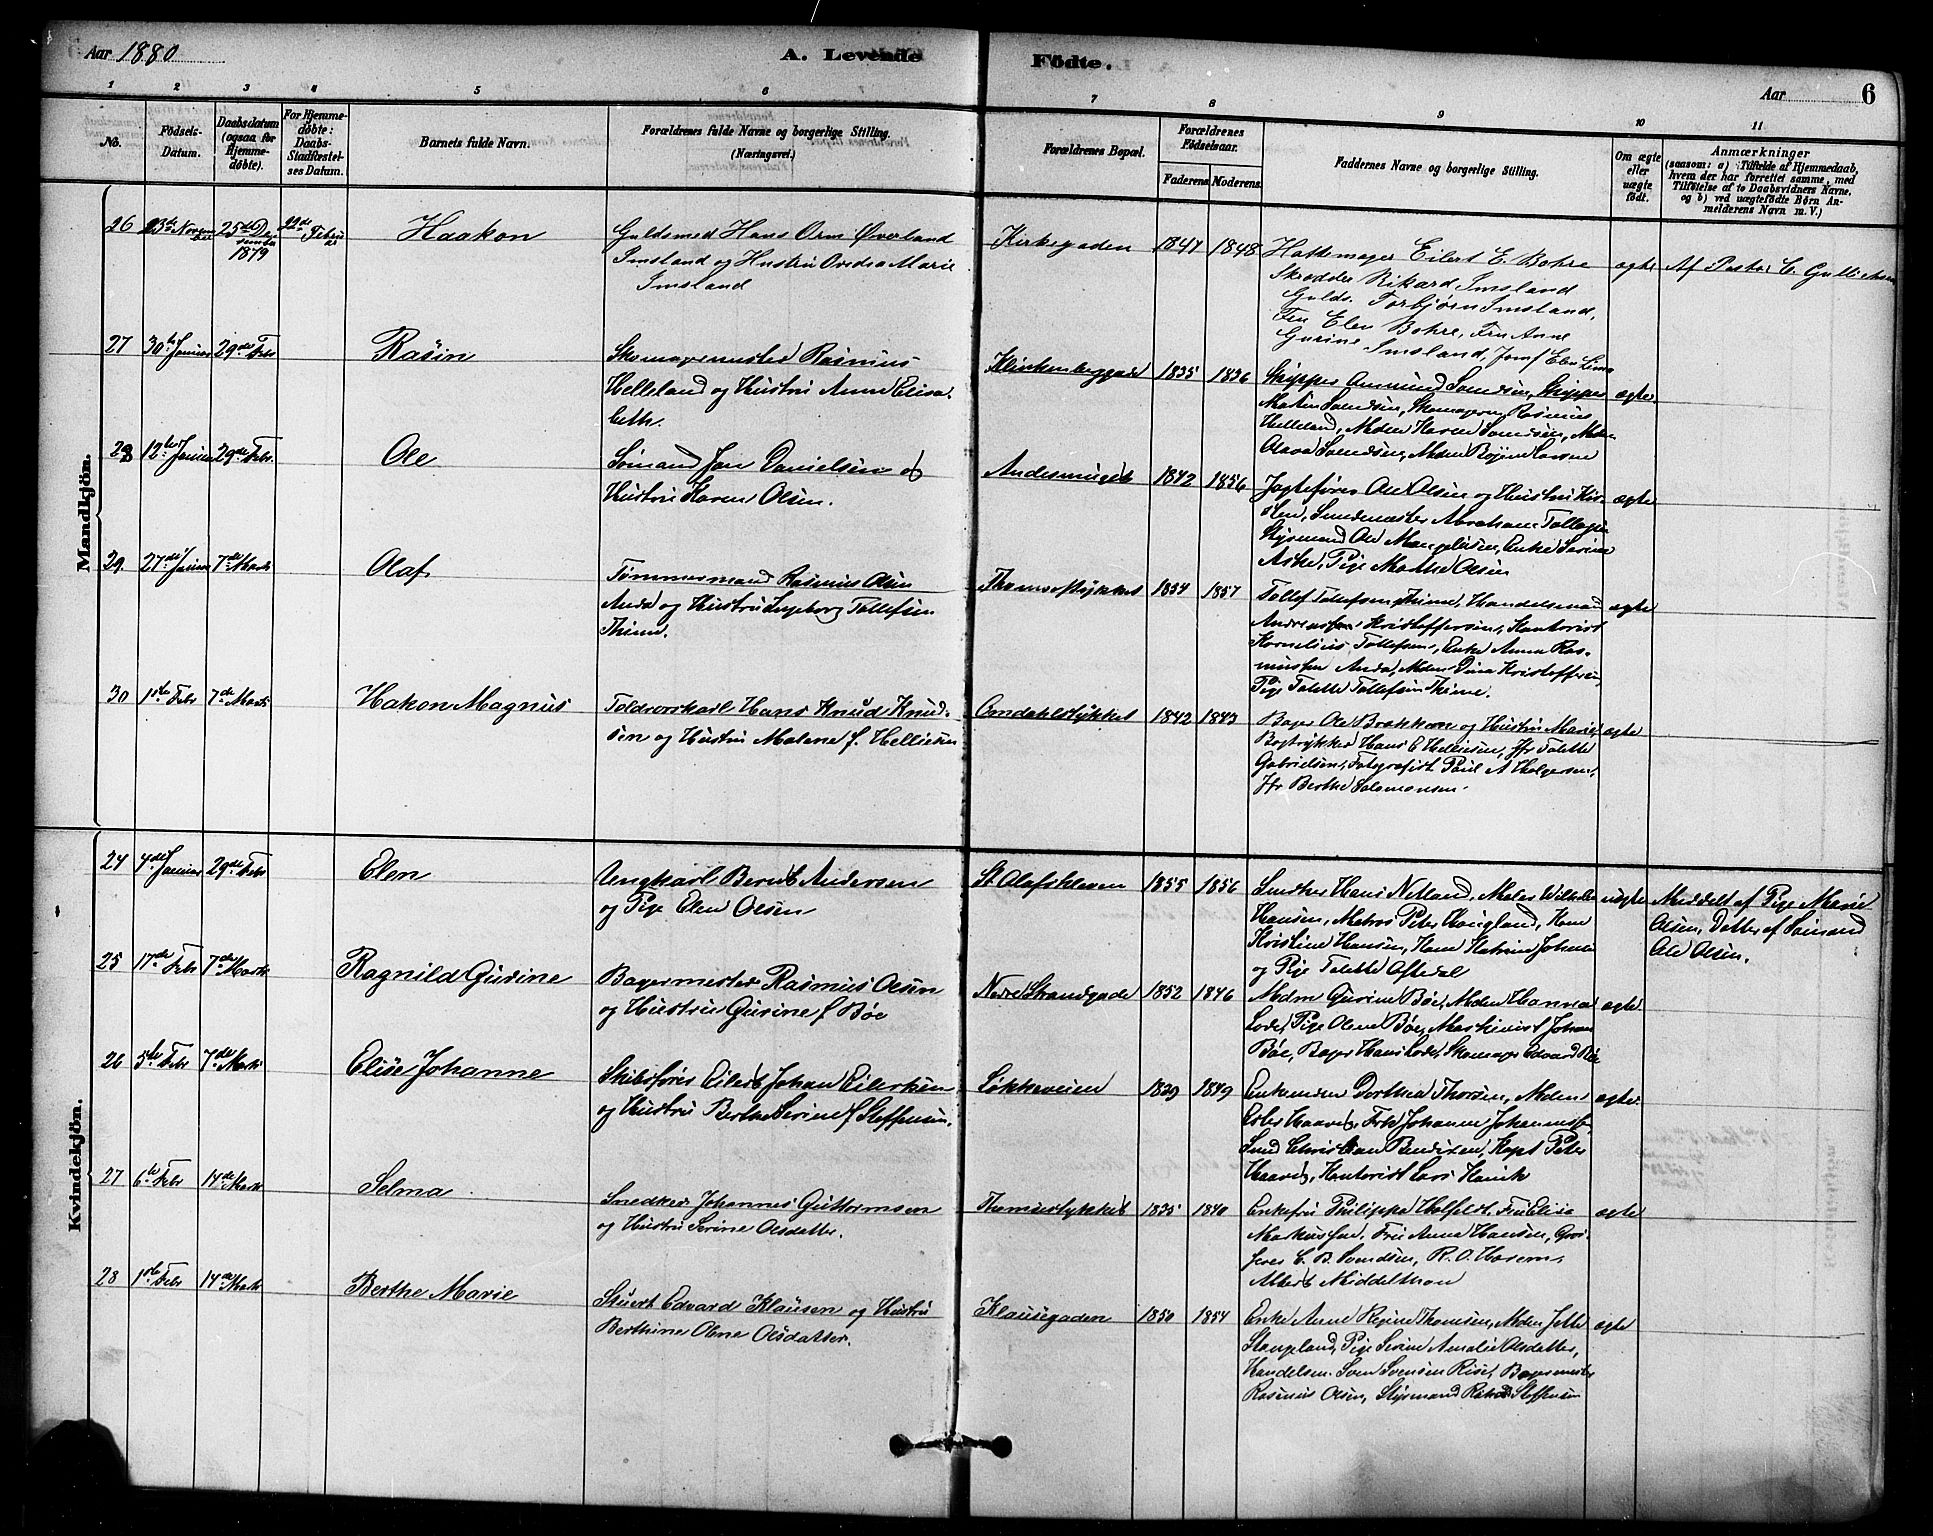 Aar 1880
A. Levende Födte.
Aar
6
1 2 3 4 5 6 7 8 9 10 11
No.
Födsels-Datum.
Daabsdatum (ogsaa for Hjemmedöbte).
For Hjemmedöbte: Daabs-Stadfæstelses Datum.
Barnets fulde Navn.
Forældrenes fulde Navne og borgerlige Stilling.
(Næringsvei.)
Forældrenes Bopæl.
Forældrenes Födselsaar.
Faderens. Moderens.
Faddernes Navne og borgerlige Stilling.
Om ægte eller uægte födt.
Anmærkninger
(saasom: a) Tilfælde af Hjemmedaab,
hvem der har forrettet samme, med
Tilföielse af to Daabsvidners Navne,
og b) ved uægtefödte Börn Anmelderens Navn m. V.)
Mandkjön.
26 23de November 25de December 1879 22de Februar
Haakon
Guldsmed Hans Orm Øverland
Imsland og Hustru Marie
Imsland
Kirkegaden 1847 1848
Hattemager Eilert E. Bohre
Skrædder Rikard Imsland
Gulds. Torbjørn Imsland,
Fru Elen Bohre, Fru Anne
Gurine Imsland, Jomf Elen Lima
ægte
Af Pastor C. Gullichsen
27 30te Januar 29de Febr
Rasin
Skomagermester Rasmus
Helleland og Hustru Anne Elisabeth.
Klinkenberggade 1835 1836
Skipper Ammund Svendsen, Skipper
Martin Svendsen, Skomagersv Rasmus
Helleland, Mdm Karen Svendsen, Mdm
Olava Svendsen, Mdm Larsen
ægte.
28 12te Januar 29de Febr.
Ole
Sømand Jan Danielsen og
Hustru Karen Olsen.
Andasmuget 1842 1856
Jagtefører Ole Olsen og Hustru
Abraham Tollagsen
Styrmand Ole Enke Serina
Aske, Pige Marthe Olsen
ægte
29. 27de Januar 7de Marts
Olaf
Tømmermand Rasmus Olsen
Anda og Hustru Ingeborg Tollefsen
Thime.
Thomsestykket 1854 1857
Tollef Tollefsen Thime, Handelsmand
Andreas Kristoffersen, Kontorist
Kornelius Tollefsen, Enke Anna Rasmussen
Anda, Mdm Dina Kristoffersen,
Pige Talette Tollefsen Thime.
ægte
30 1ste Febr 7de Marts
Hakon Magnus
Toldroerskarl Hans Knud Knudsen
og Hustru Malene f. Helliesen
Omdahlstykket 1842 1843
Bager Ole Brekken og Hustru Marie,
Bogtrykker Hans E Helliesen, Jfr Talette
Gabrielsen, Fotografist Paul A Holgersen,
Jfr Berthe Salomonsen.
ægte
Kvindekjön.
24 4de Januar 29de Febr
Elen
Ungkarl Bernt Andersen
og Pige Elen Olsen
St Olafskleven 1855 1856
Snedker Hans Netland, Maler Wilhelm
Hansen, Matros Peter Haugland, Kone
Kristine Hansen, Kone Katrine Johnsen
og Pige Talette Aftedal
uægte
Meddelt af Pige Marie
Olsen, Datter af Sømand
Ole Olsen.
25 17de Febr 7de Marts
Ragnild Gurine
Bagermester Rasmus Olsen
og Hustru Gurine f Bøe
Nedre Strandgade 1852 1846
Mdm Gurine Bøe, Mdm Hanna
Lode, Pige Olene Bøe, Maskinist Johan
Bøe, Bager Hans Lode, Skomager Edvard Bøe
ægte.
26 5te Febr 7de Marts
Elise Johanne
Skibsfører Eilert Johan Eilertsen
og Hustru Berthe Serine f Steffensen.
Løkkeveien 1839 1849
Enkemdm Dorthea Thorsen, Mdm
Haaver, Frk Johanne Johannesen
Christian Bendixen, Kapt Peter
Haaver, Kontorist Lars Hanik
ægte.
27 6te Febr 14de Marts
Selma
Snedker Johannes Guttormsen
og Hustru Serine Olsdatter.
Thomsestykket 1835 1840
Enkefru Philippa Holfeldt, Fru Elisa
Markussen, Fru Anna Hansen, Grosserer
C. B. Svendsen, R. O. Harem,
Albert Middelthon
ægte
28 1ste Febr 14de Marts
Berthe Marie
Stuert Edvard Klausen og Hustru
Berthine Olene Olsdatter.
Klausegaden 1850 1854
Enke Anne Regine Thomsen, Mdm Jette
Stangeland, Pige Serine Amalie Olsdatter,
Handelsm. Sven Svensen Rise, Bagermester
Rasmus Olsen, Styrmand Rikard Steffensen
ægte